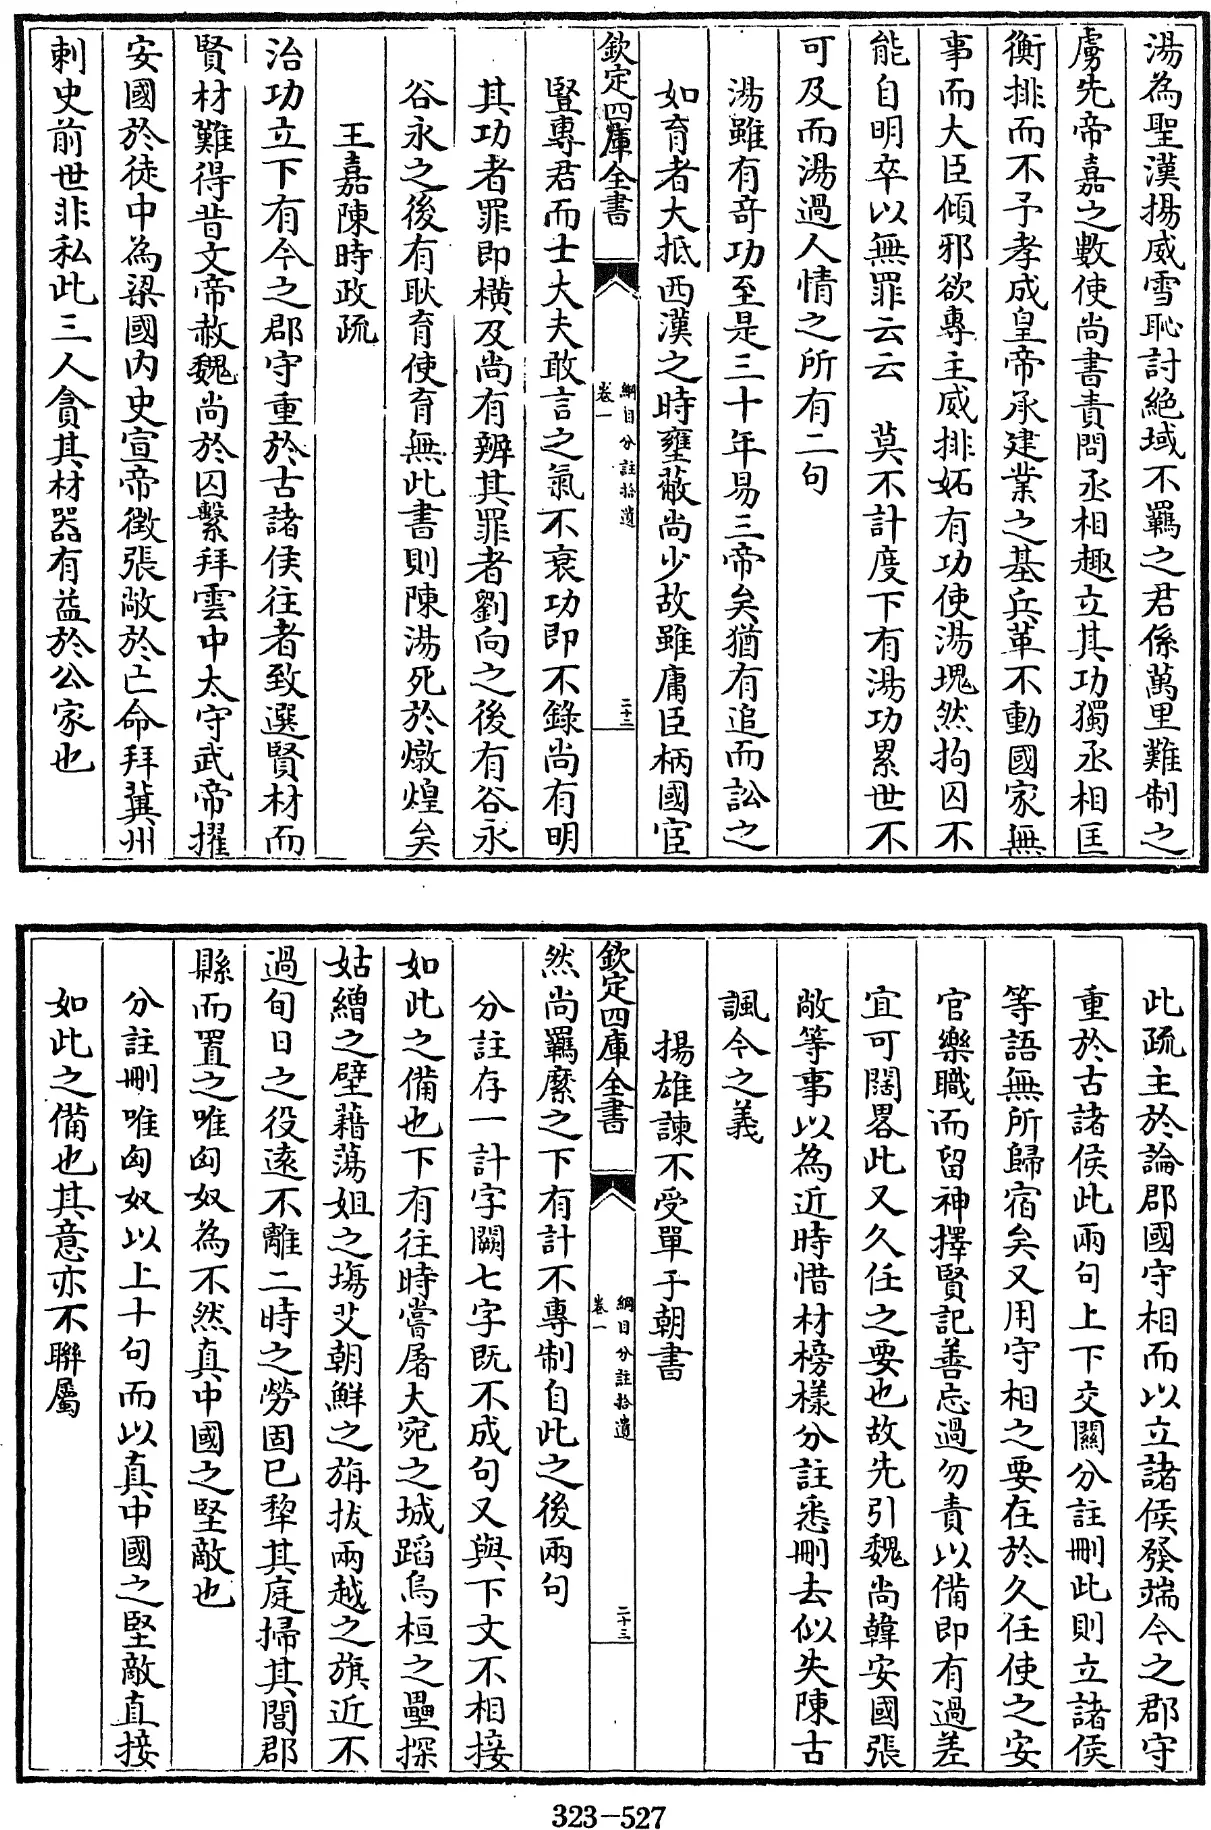 湯為聖漢揚威雪恥討絕域不羈之君係萬里難制之
虜先帝嘉之數使尚書責問丞相趣立其功獨丞相匡
衡排而不予孝成皇帝承建業之基兵革不動國家無
事而大臣傾邪欲專主威排妬有功使湯塊然拘囚不
能自明卒以無罪云云　莫不計度下有湯功累世不
可及而湯過人情之所有二句
湯雖有奇功至是三十年易三帝矣猶有追而訟之
如育者大抵西漢之時壅蔽尚少故雖庸臣柄國宦
欽定四庫全書
綱目分註拾遺
卷一
二十二
豎專君而士大夫敢言之氣不衰功即不錄尚有明
其功者罪即橫及尚有辨其罪者劉向之後有谷永
谷永之後有耿育使育無此書則陳湯死於燉煌矣
王嘉陳時政疏
治功立下有今之郡守重於古諸侯往者致選賢材而
賢材難得昔文帝赦魏尚於囚繫拜雲中太守武帝擢
安國於徒中為梁國內史宣帝徵張敞於亡命拜冀州
刺史前世非私此三人貪其材器有益於公家也
此疏主於論郡國守相而以立諸侯發端今之郡守
重於古諸侯此兩句上下交關分註刪此則立諸侯
等語無所歸宿矣又用守相之要在於久任使之安
官樂職而留神擇賢記善忘過勿責以備即有過差
宜可闊畧此又久任之要也故先引魏尚韓安國張
敞等事以為近時惜材榜樣分註悉刪去似失陳古
諷今之義
揚雄諫不受單于朝書
欽定四庫全書
綱目分註拾遺
卷一
二十三
然尚羈縻之下有計不專制自此之後兩句
分註存一計字闕七字既不成句又與下文不相接
如此之備也下有往時嘗屠大宛之城蹈烏桓之壘探
姑繒之壁藉蕩姐之場艾朝鮮之旃拔兩越之旗近不
過旬日之役遠不離二時之勞固已犂其庭掃其閭郡
縣而置之唯匈奴為不然真中國之堅敵也
分註刪唯匈奴以上十句而以真中國之堅敵直接
如此之備也其意亦不聯屬
323-527